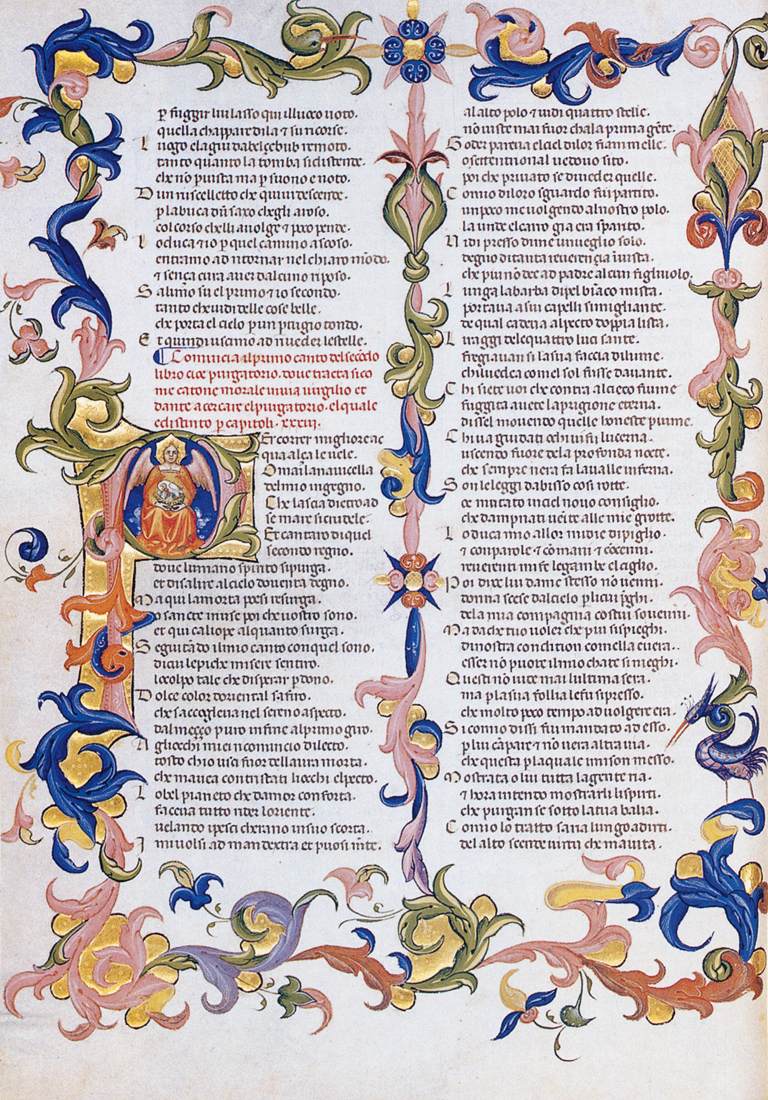 p fuggir lui lasso qui illuoco uoto.
quella chappar dila ⁊ su ricorse.
Luogo e lagiu dabelçebub remoto.
tanto quanto la tomba si distende.
che nō p uista ma p suono e noto.
Dun ruscelletto che quiui descende.
p la buca dū saxo chegli a roso.
col corso chelli auolge ⁊ poco pende.
Lo duca ⁊ io p quel camino ascoso.
entramo ad ritornar nel chiaro mōdo.
⁊ sença cura auer dalcuno riposo.
Salimo su el primo ⁊ io secondo.
tanto che uidi delle cose belle.
che porta el cielo p un ptugio tondo.
Et quindi uscimo ad riueder le stelle.
Comincia al primo canto del secōdo
libro cioe purgatorio. doue tracta sico
me catone morale uiuia uirgilio et
dante a cercare el purgatorio. el quale
e distinto p capitoli. xxxiii.
Per correr miglior ac
qua alça le uele.
Omai la nauicella
del mio ingegno.
Che lascia dietro ad
se mare si crudele.
Et cantaro di quel
secondo regno.
doue lumano spirito si purga.
et di salire al cielo doventa degno.
Ma qui la morta poesi resurga.
o sancte muse poi che uostro sono.
et qui caliope alquanto surga.
Seguitādo il mio canto con quel sono.
di cui le piche misere sentiro.
lo colpo tale che disperar pdono.
Dolce color doriental safiro.
che saccoglieua nel sereno aspecto.
dal meço puro infine al primo giro.
Agliocchi miei ricomincio dilecto.
tosto chio usci fuor dellaura morta.
che mauea contristati liocchi el pecto.
Lo bel pianeto che damor conforta.
faceua tutto rider loriente.
uelando i pesci cherano in sua scorta.
I mi uolsi ad man dextra et puosi mēte.
al alto polo ⁊ uidi quattro stelle.
nō uiste mai fuor cha la prima gēte.
Goder pareua el ciel di lor fiammelle.
o settentrional uedouo sito.
poi che priuato se di ueder quelle.
Comio di loro sguardo fui partito.
un poco me uolgendo al nostro polo.
la unde el carro gia era sparito.
Uidi presso di me un ueglio solo.
degno di tanta reuerença in uista.
che piu nō dee ad padre alcun figliuolo.
Lunga la barba di pel biāco mista.
portaua a suoi capelli simigliante.
de qual cadeua al pecto doppia lista.
Li raggi de le quattro luci sante.
fregiauan si la sua faccia di lume.
chi uedea comel sol fusse dauante.
Chi siete uoi che contra al cieco fiume
fuggita auete la prigione eterna.
dissel mouendo quelle honeste piume.
Chi ua guidati o chi ui fu lucerna.
uscendo fuore de la profonda nocte.
che sempre nera fa la ualle inferna.
Son le leggi dabisso cosi rotte.
o e mutato in ciel nouo consiglio.
che dampnati uenite alle mie grotte.
Lo duca mio allor mi die di piglio
⁊ con parole ⁊ cō mani ⁊ cō cenni.
reuerenti mi fe le gambe el ciglio.
Poi dixe lui da me stesso nō uenni.
donna scese dal cielo p li cui pghi.
de la mia compagnia costui souenni.
Ma da che tuo uoler che piu si spieghi.
di nostra condition comella e uera.
esser nō puote il mio cha te si nieghi.
Questi nō uite mai lultima sera.
ma p la sua follia le fu si presso.
che molto poco tempo ad uolgere era.
Si comio dissi fui mandato ad esso.
p lui cāpare ⁊ nō uera altra uia.
che questa p la quale mi son messo.
Mostrata o lui tutta la gente ria.
⁊ hora intendo mostrarli li spirti.
che purgan se sotto la tua balia.
Comio lo tratto saria lungo a dirti.
del alto scende uirtu che maiuta.